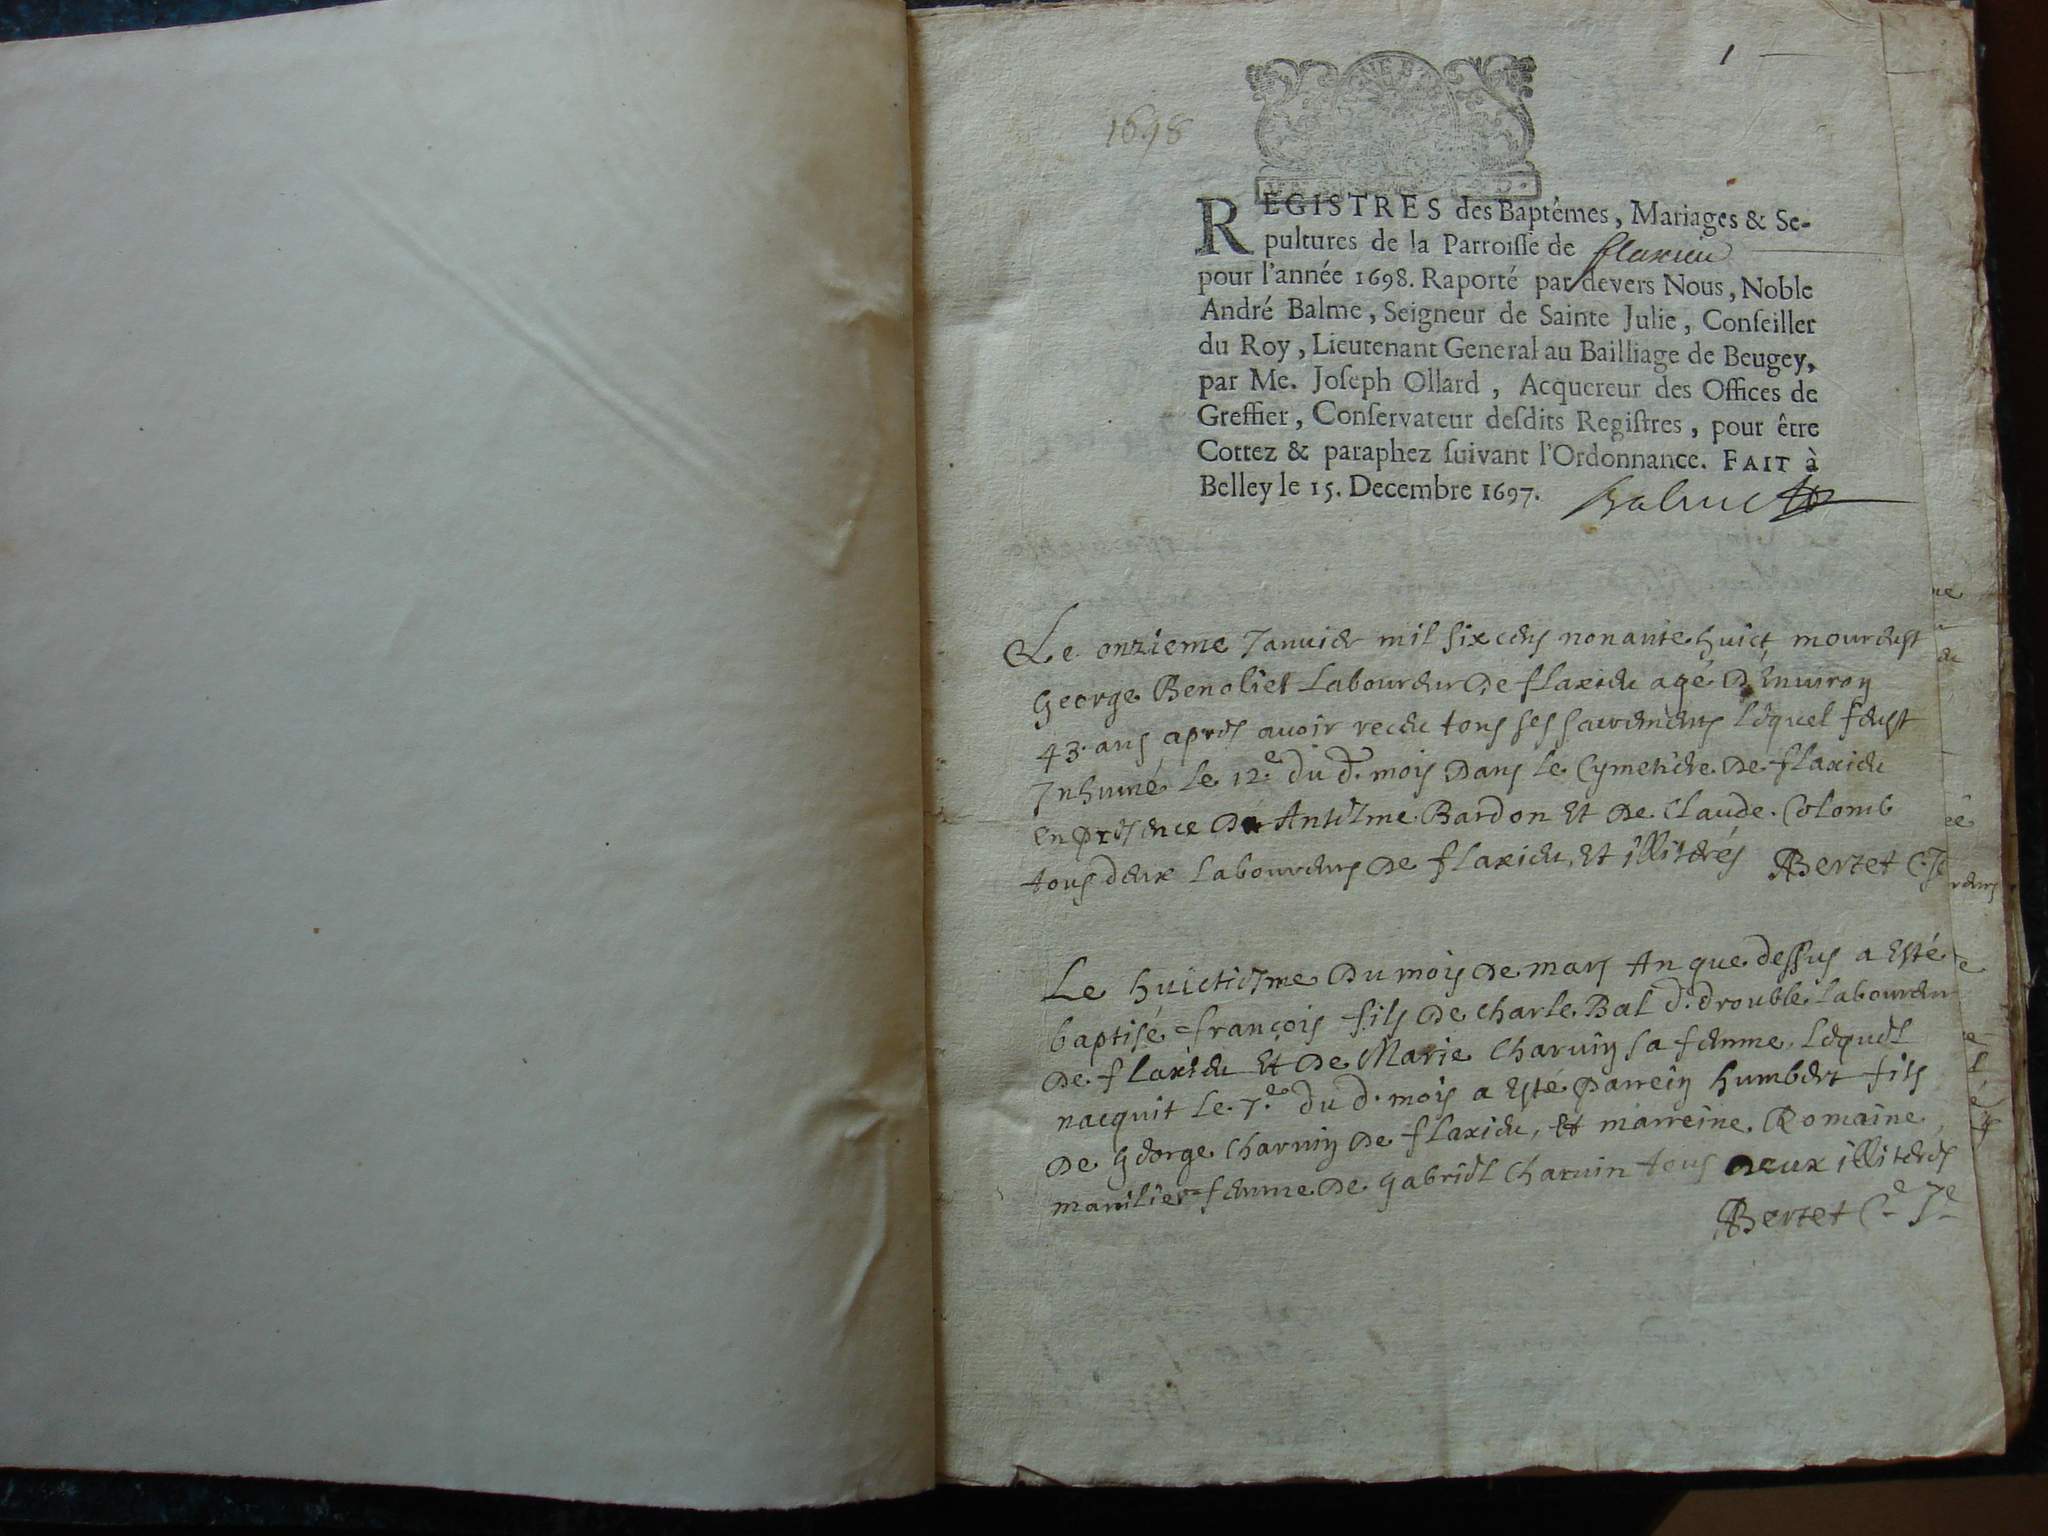 1
1698
REGISTRES des Baptêmes, Mariages & Se-
pultures de la Parroisse de flaxieu
pour l'année 1698. Raporté par devers Nous, Noble
André Balme, Seigneur de Sainte Julie, Conseiller
du Roy, Lieutenant General au Bailliage de Beugey,
par Me. Joseph Ollard, Acquereur des Offices de
Greffier, Conservateur desdits Registres, pour être
Cottez & paraphez suivant l'Ordonnance. FAIT à
Belley le 15. Decembre 1697. Balme
Le onzieme Januier mil six cens nonante huict mourust
George Benoliet Laboureur De flaxieu agé D'Enuiron
43. ans apres auoir receu tous ses sacremens lequel feust
Inhumé le 12.e du d. mois Dans le Cymetiere De flaxieu
en presence De Antelme Bardon et De Claude Colomb
tous deux Laboureurs De flaxieu et illiterés Bertet
Le huictiesme Du mois De mars An que dessus a esté
baptisé françois fils De Charle Bal d. drouble Laboureur
De flaxieu Et De Marie Charuin sa femme, Lequel
nacquit le 7.e du d. mois a esté parrein humbert fils
De George Charuin De flaxieu, et marreine Romaine
femme De gabriel Charuin tous Deux illiterés
Bertet C.e J.e